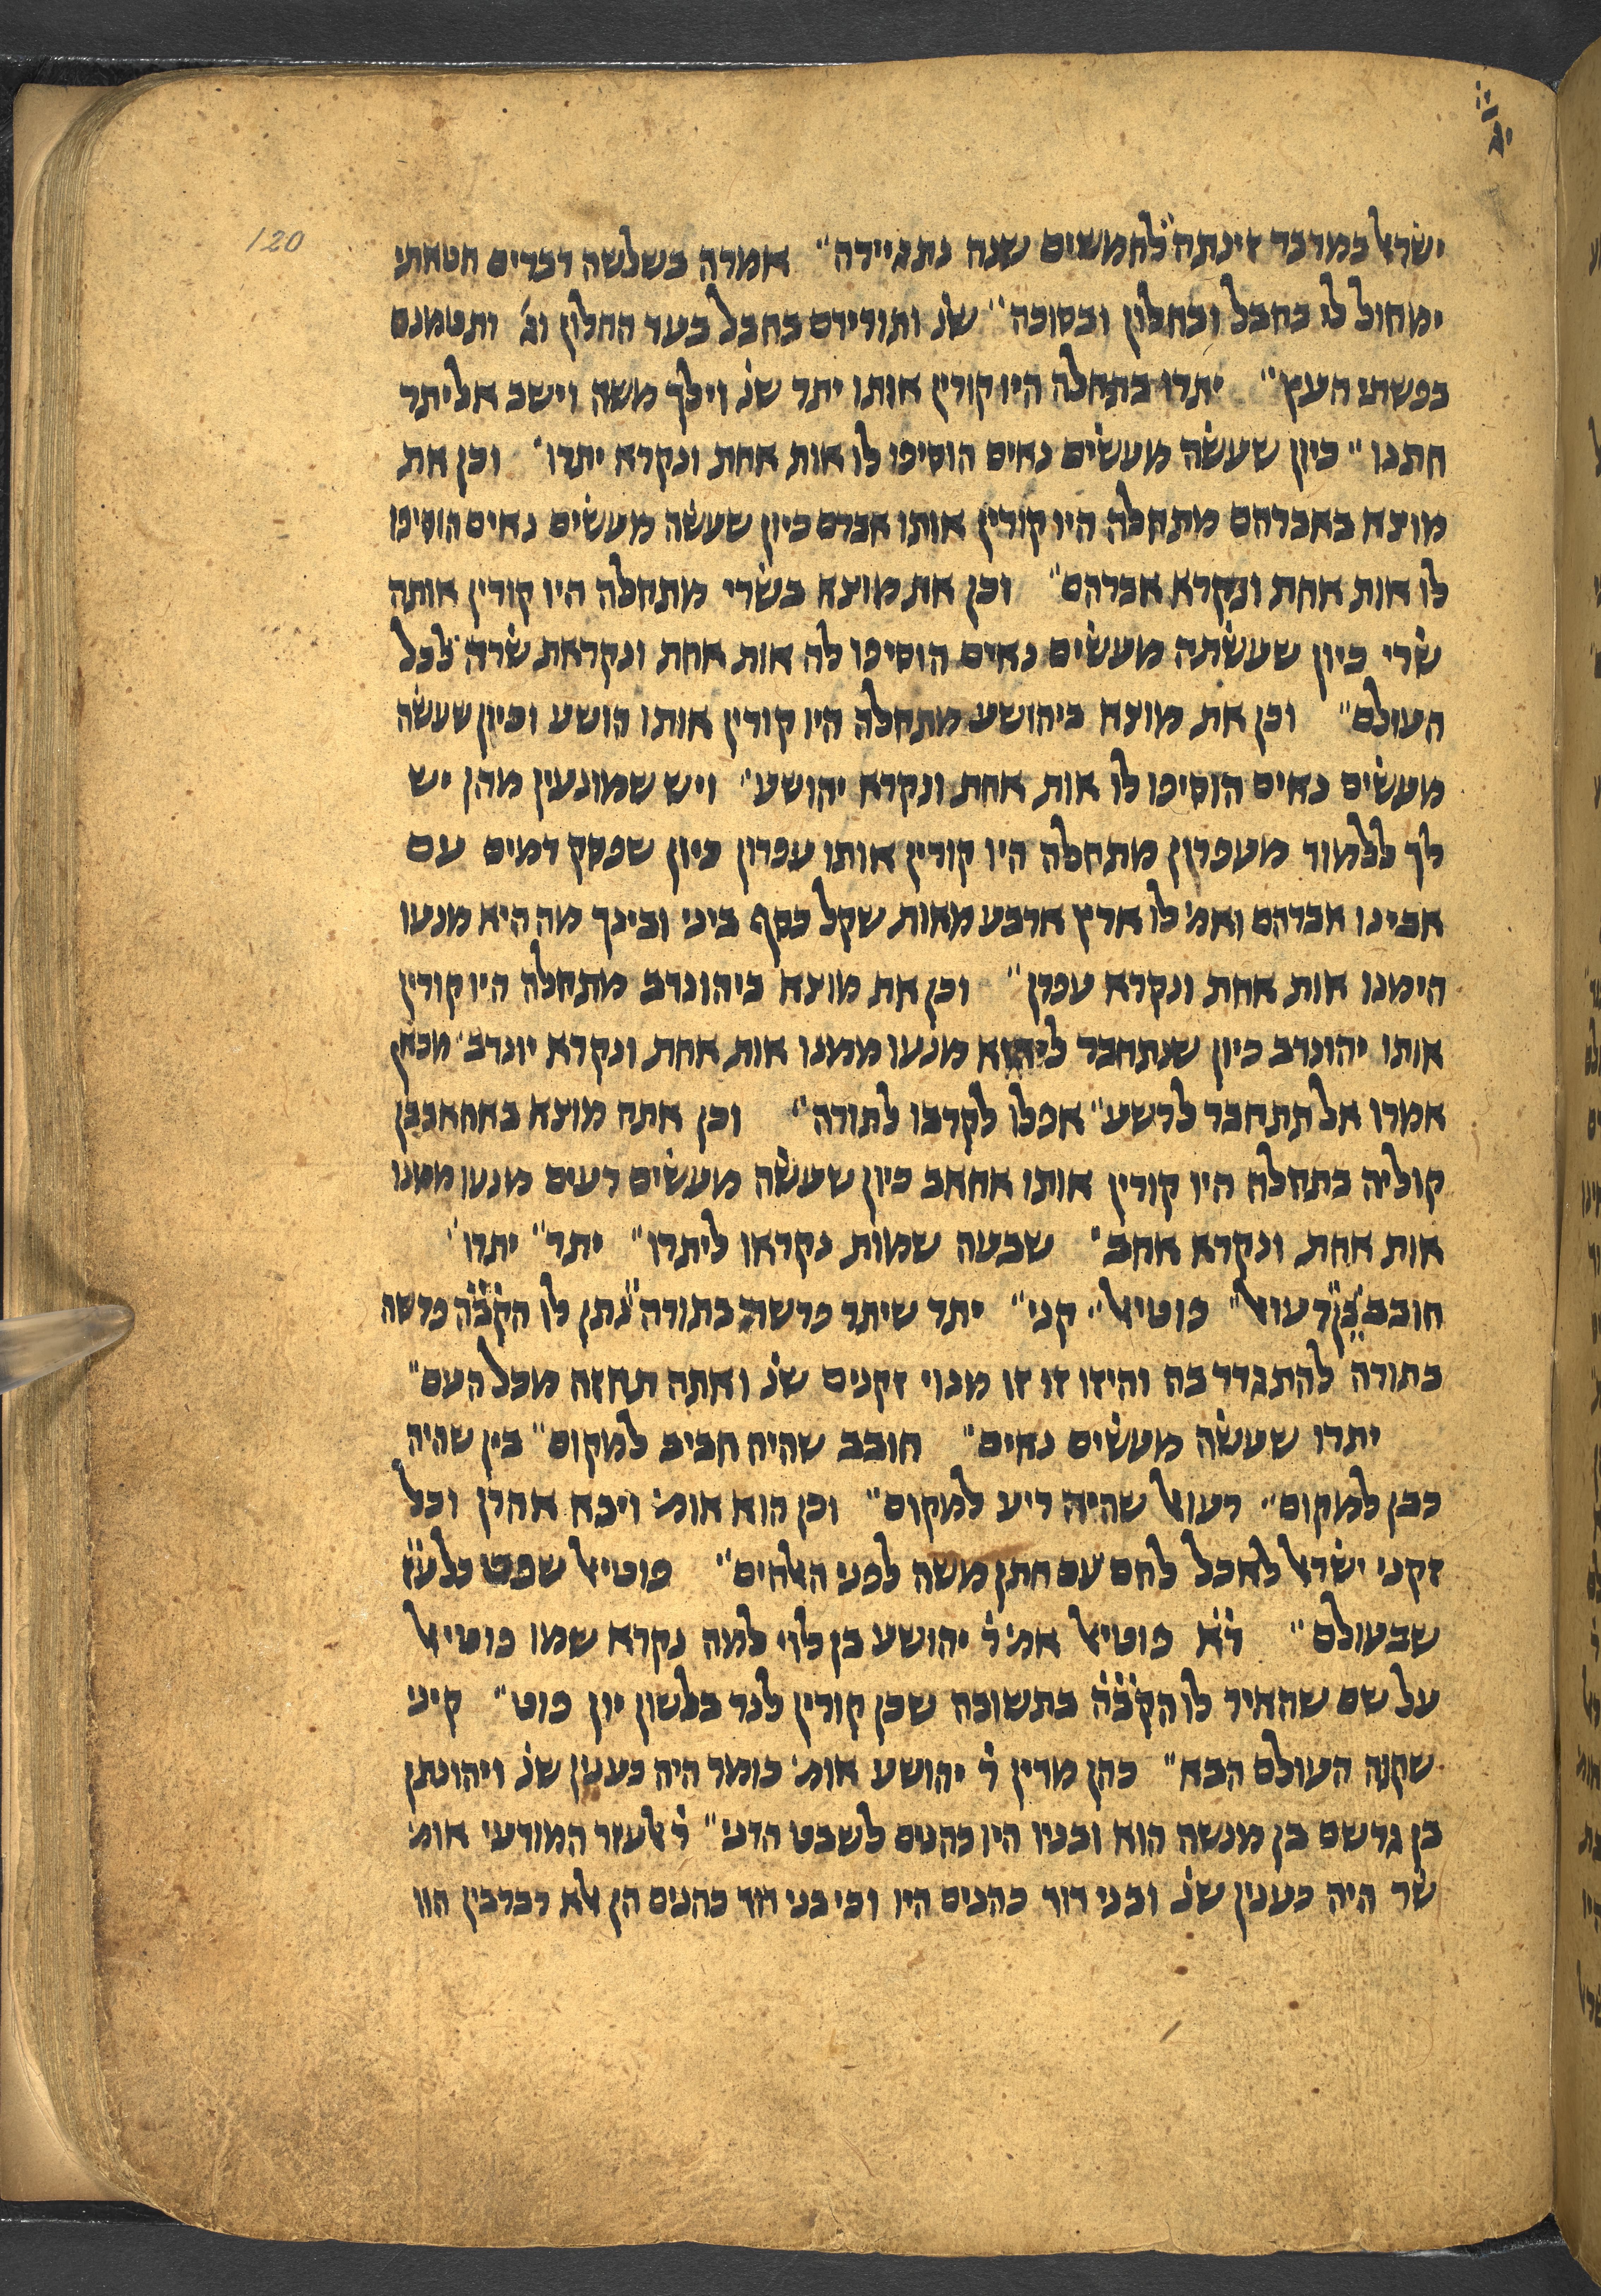 120
ישׂראל במדבר זינתה לחמשים שנה נתגיירה״ אמרה בשלשה דברים חטאתי
ימחול לי בחבל ובחלון ובסוכה״ שנ֗ ותורידם בחבל בעד החלון וג֗ ותטמנם
בפשתי העץ״ יתרו בתחלה היו קורין אותו יתר שנ֗ וילך משה וישב אל יתר
חתנו״ כיון שעשׂה מעשׂים נאים הוסיפו לו אות אחת ונקרא יתרו׳ וכן את
מוצא באברהם מתחלה היו קורין אותו אברם כיון שעשׂה מעשׂים נאים הוסיפו
לו אות אחת ונקרא אברהם״ וכן את מוצא בשׂרי מתחלה היו קורין אותה
שׂרי כיון שעשׂתה מעשׂים נאים הוסיפו לה אות אחת ונקראת שׂרה לכל
העולם״ וכן את מוצא ביהושע מתחלה היו קורין אותו הושע וכיון שעשׂה
מעשׂים נאים הוסיפו לו אות אחת ונקרא יהושע׳ ויש שמונעין מהן יש
לך ללמוד מעפרון מתחלה היו קורין אותו עפרון כיון שפסק דמים עם
אבינו אברהם ואמ׳ לו ארץ ארבע מאות שקל כסף ביני ובינך מה היא מנעו
הימנו אות אחת ונקרא עפרן״ וכן את מוצא ביהונדב מתחלה היו קורין
אותו יהונדב כיון שנתחבר ליהוא מנעו ממנו אות אחת ונקרא יונדב׳ מכאן
אמרו אל תתחבר לרשע״ אפלו לקרבו לתורה״ וכן אתה מוצא באחאב בן
קוליה בתחלה היו קורין אותו אחאב כיון שעשׂה מעשׂים רעים מנעו ממנו
אות אחת ונקרא אחב״ שבעה שמות נקראו ליתרו״ יתר״ יתרו׳
חובב״ בן״ רעואל״ פוטיאל״ קני״ יתר שיתר פרשה בתורה״ נתן לו הק֗ב֗ה֗ פרשה
בתורה להתגדר בה והיזו זו זו מנוי זקנים שנ֗ ואתה תחזה מכל העם״
יתרו שעשׂה מעשׂים נאים״ חובב שהיה חביב למקום״ בין שהיה
כבן למקום״ רעואל שהיה ריע למקום״ וכן הוא אומ׳ ויבא אהרן וכל
זקני ישׂראל לאכל לחם עם חתן משה לפני האלהים״ פוטיאל שפט כל ע֗ז֗
שבעולם״ ד֗א֗ פוטיאל אמ׳ ר֗ יהושע בן לוי למה נקרא שמו פוטיאל
על שם שהאיר לו הק֗ב֗ה֗ בתשובה שכן קורין לנר בלשון יון פוט״ קיני
שקנה העולם הבא״ כהן מדין ר֗ יהושע אומ׳ כומר היה כענין שנ֗ ויהונתן
בן גרשם בן מנשה הוא ובניו היו כהנים לשבט הדני״ ר֗ אלעזר המודעי אומ׳
שׂר היה כענין שנ֗ ובני דוד כהנים היו וכי בני דוד כהנים הן אלא רברבין הוו